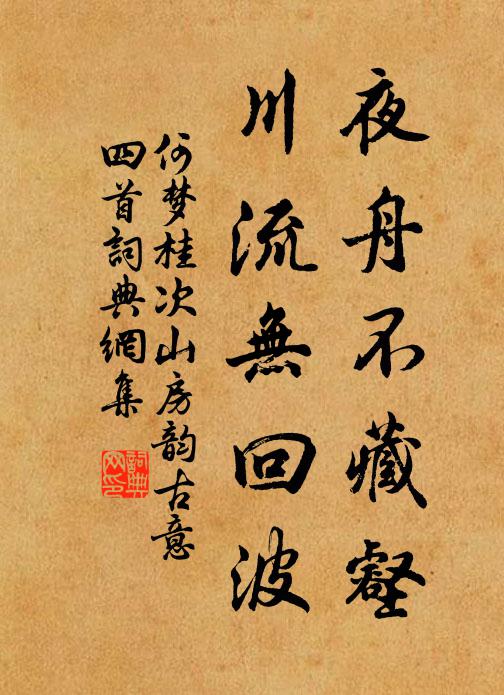 夜舟不藏壑
川流無回波
何梦桂次山房韵古意
四首詞典網集
詞典網印